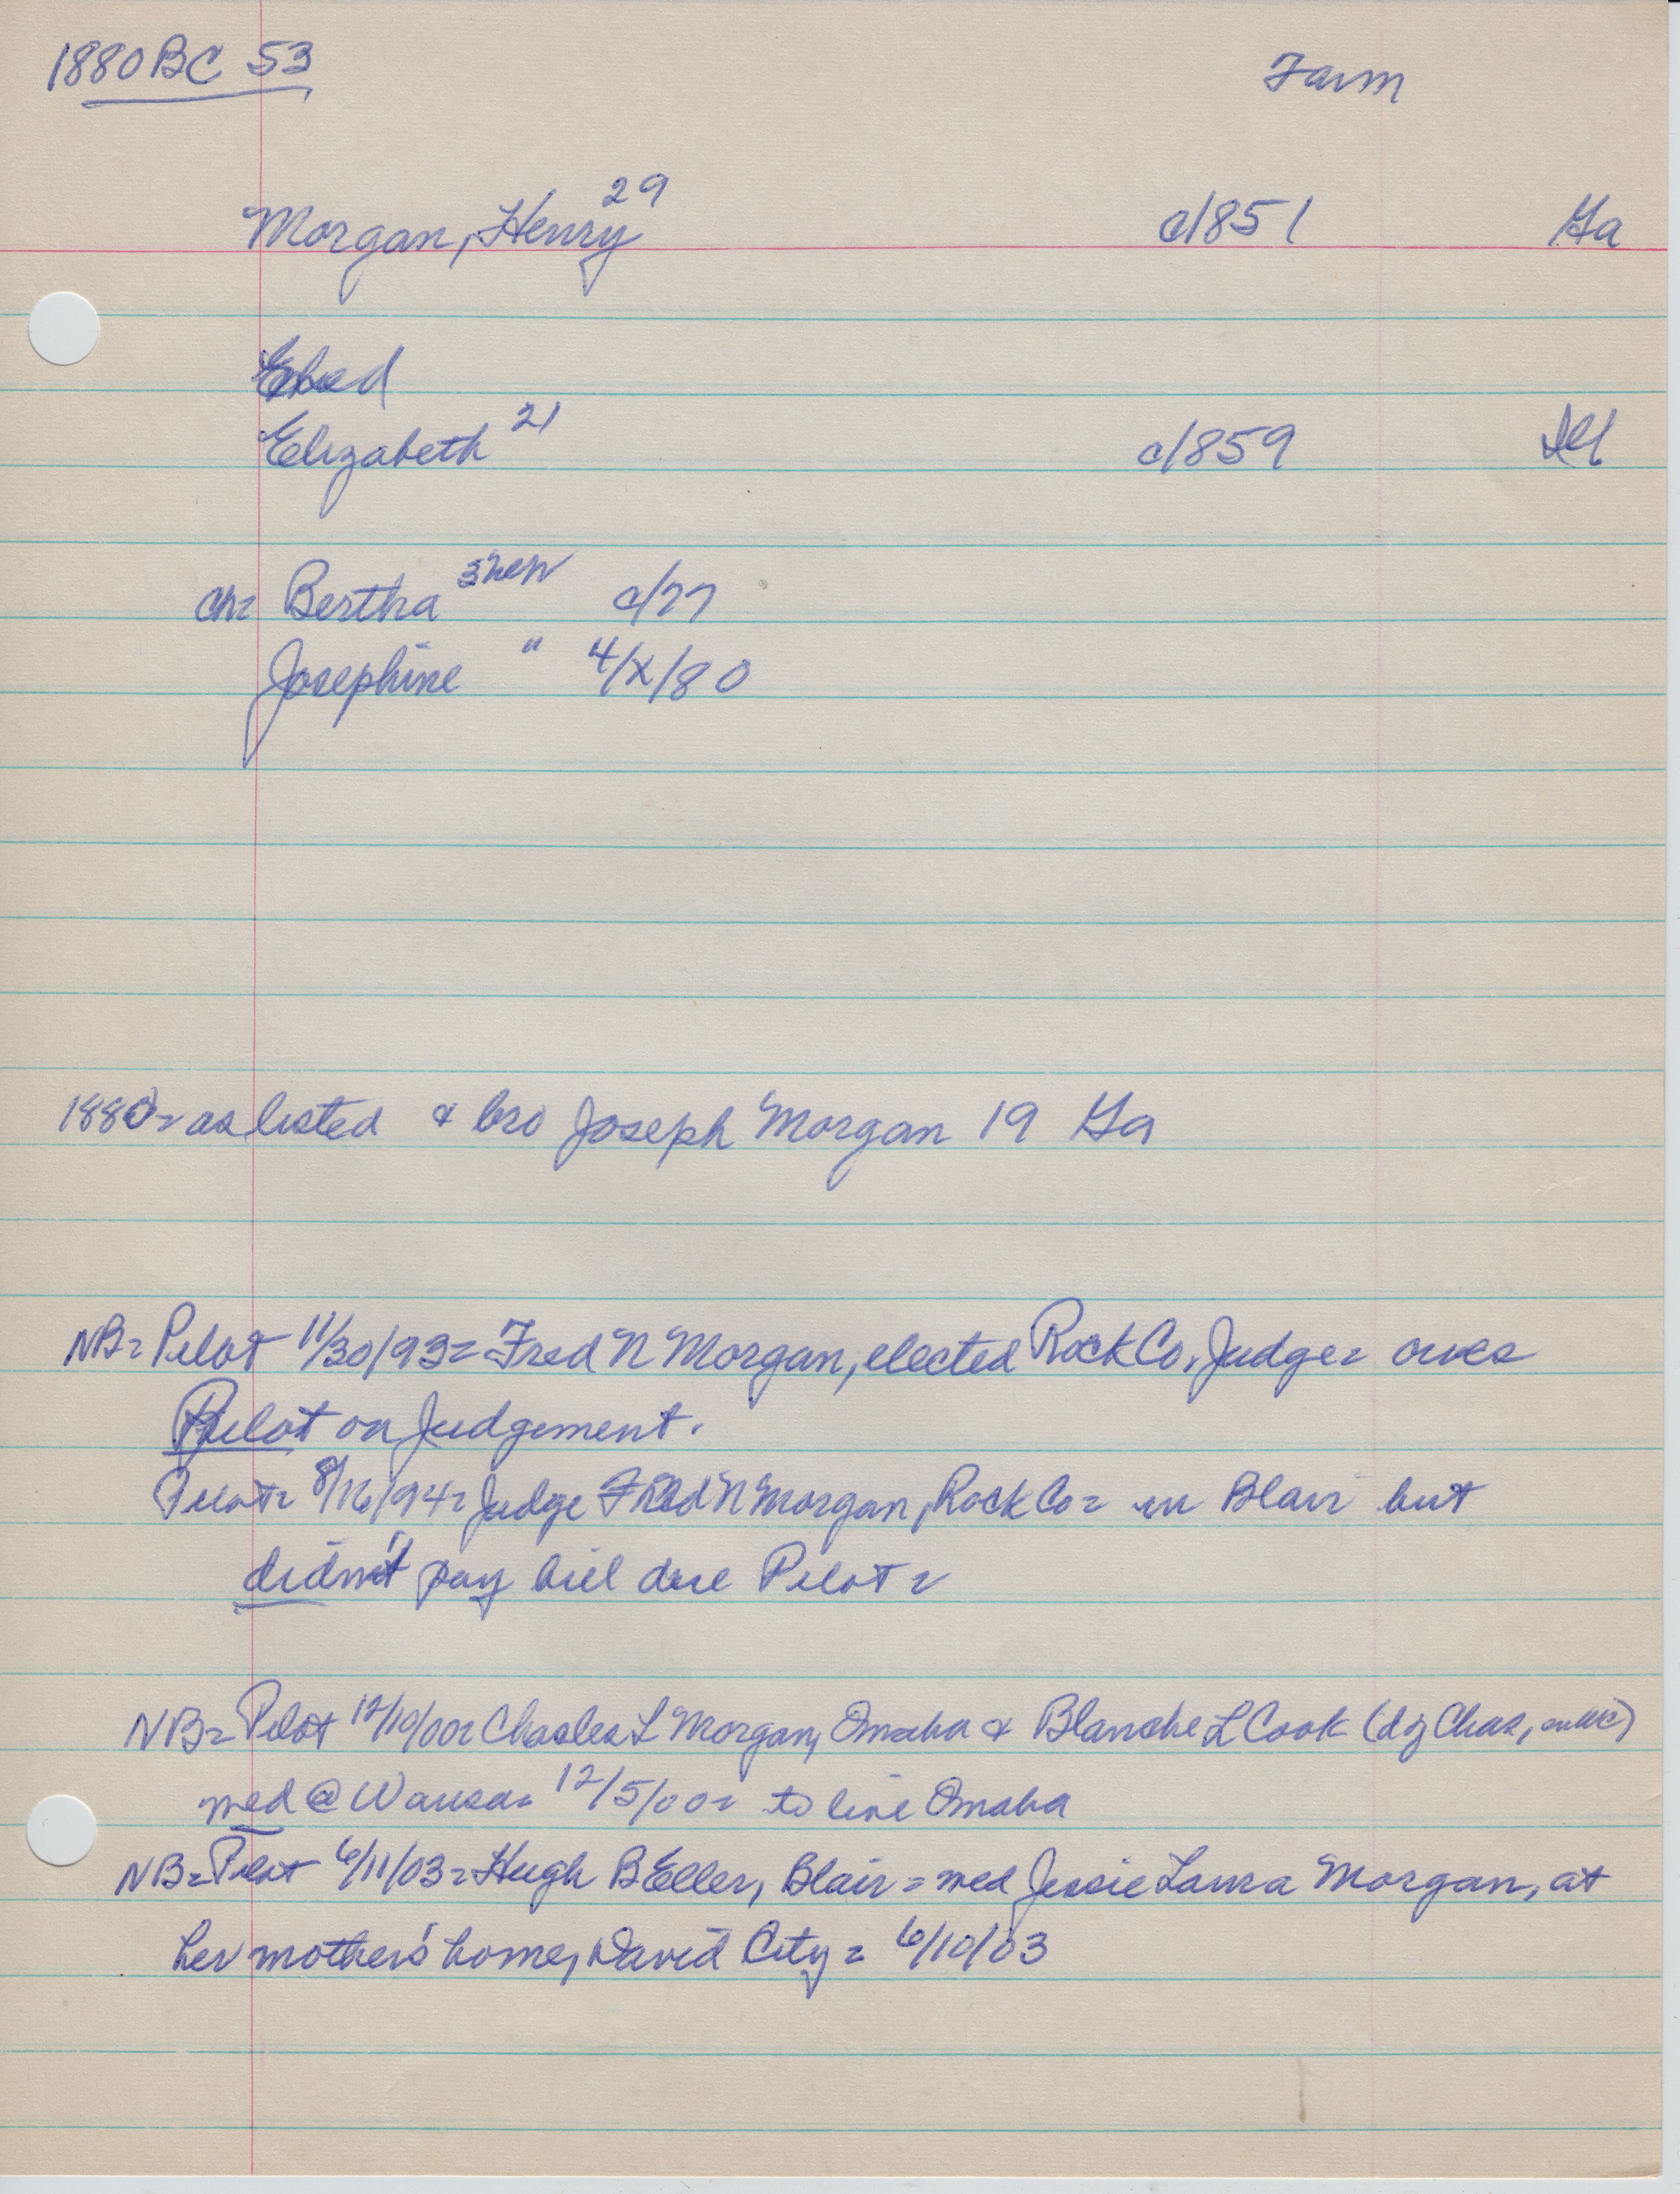 1880 BC 53 Farm
Morgan, Henry 29 c/851 Ga
Elizabeth 21 c/859 Ill
ch= Bertha 3 New c/77
Josephine " 4/x/80
1880= as listed & bro Joseph Morgan 19 Ga
NB= Pilot 11/30/93= Fred N Morgan, elected Rock Co. Judge= owes
Pilot on Judgement.
Pilot= 8/16/94= Judge Fred N Morgan, Rock Co= in Blair but
didn't pay bill due Pilot=
NB= Pilot 12/10/00= Charles L Morgan, Omaha & Blanche L Cook (d of Chas,
med @ Wausa= 12/5/00= to live Omaha
NB= Pilot 6/11/03= Hugh B Eller, Blair= med Jessie Laura Morgan, at
her mother's home, David City= 6/10/03